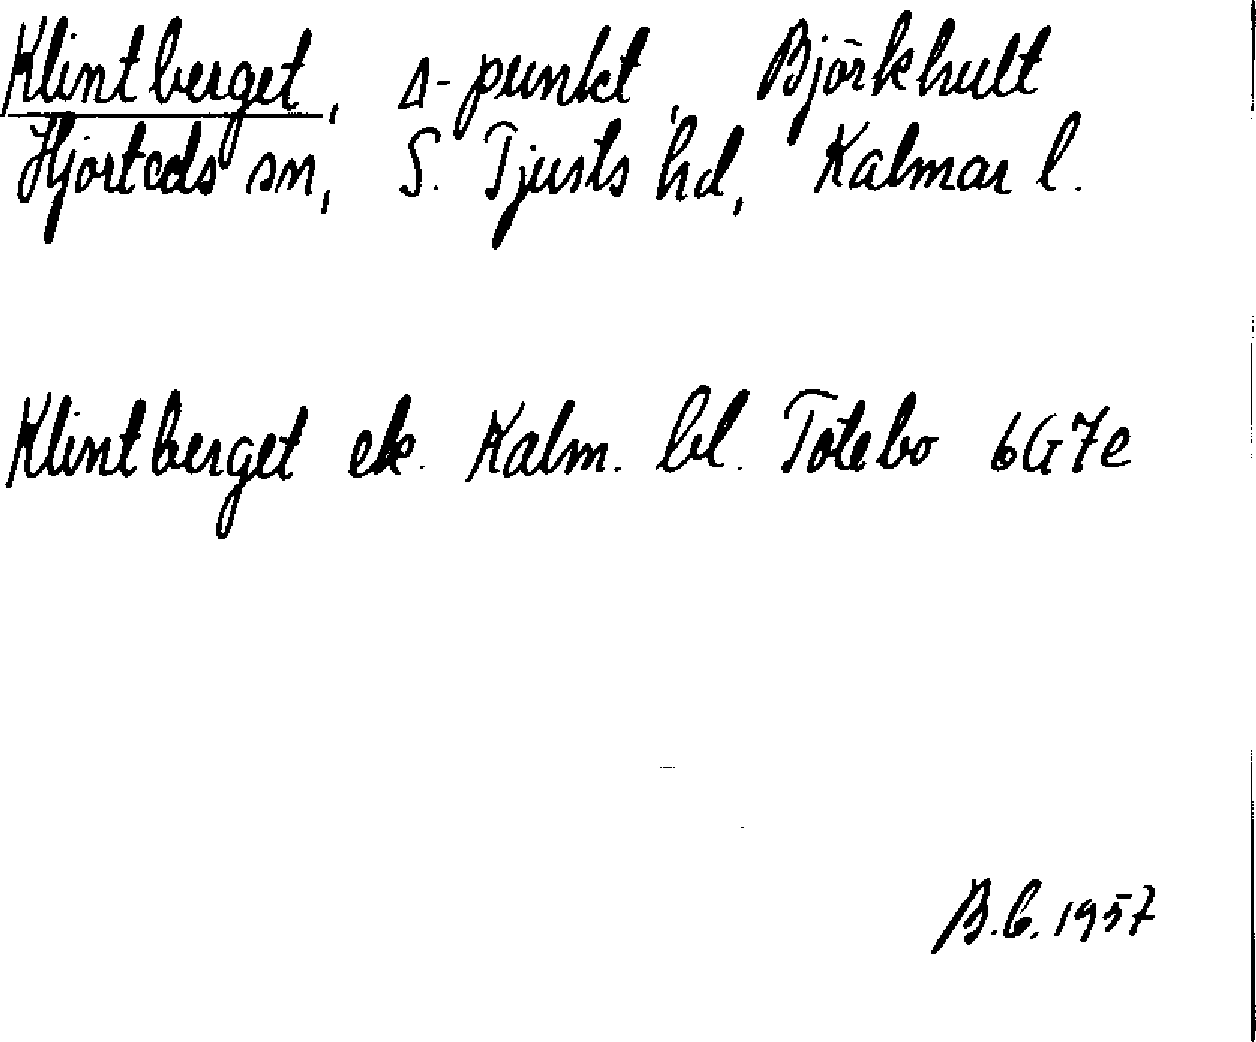 Klintberget, Δ-punkt, Björkhult
Hjorteds sn, S. Tjusts hd, Kalmar l.
Klintberget ek. Kalm. bl. Totebo 6G7e
B.G. 1957